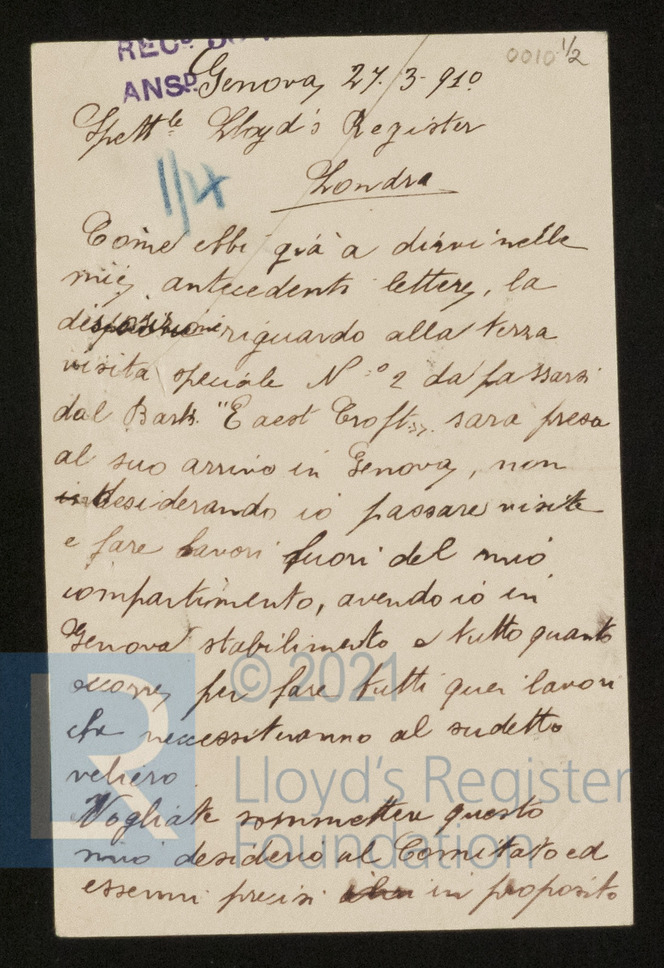 REC^D
ANS^D
0010 1/2
Genova, 27.3.910
Spett^le Lloyd's Register
Londra
1/4
Come ebbi già a dirvi nelle
mie antecedenti lettere, la
disposizione riguardo alla terza
visita speciale N.° 2 da passarsi
dal Bark "Eaest Croft" sara presa
al suo arrivo in Genova, non
desiderando io passare visite
e fare lavori fuori del mio
compartimento, avendo io in
Genova stabilimento e tutto quanto
occorre, per fare tutti quei lavori
che necessiteranno al sudetto
veliero.
Vogliate sommettere questo
mio desiderio al Comitato ed
essermi precisi in proposito
© 2021
Lloyd's Register
Foundation